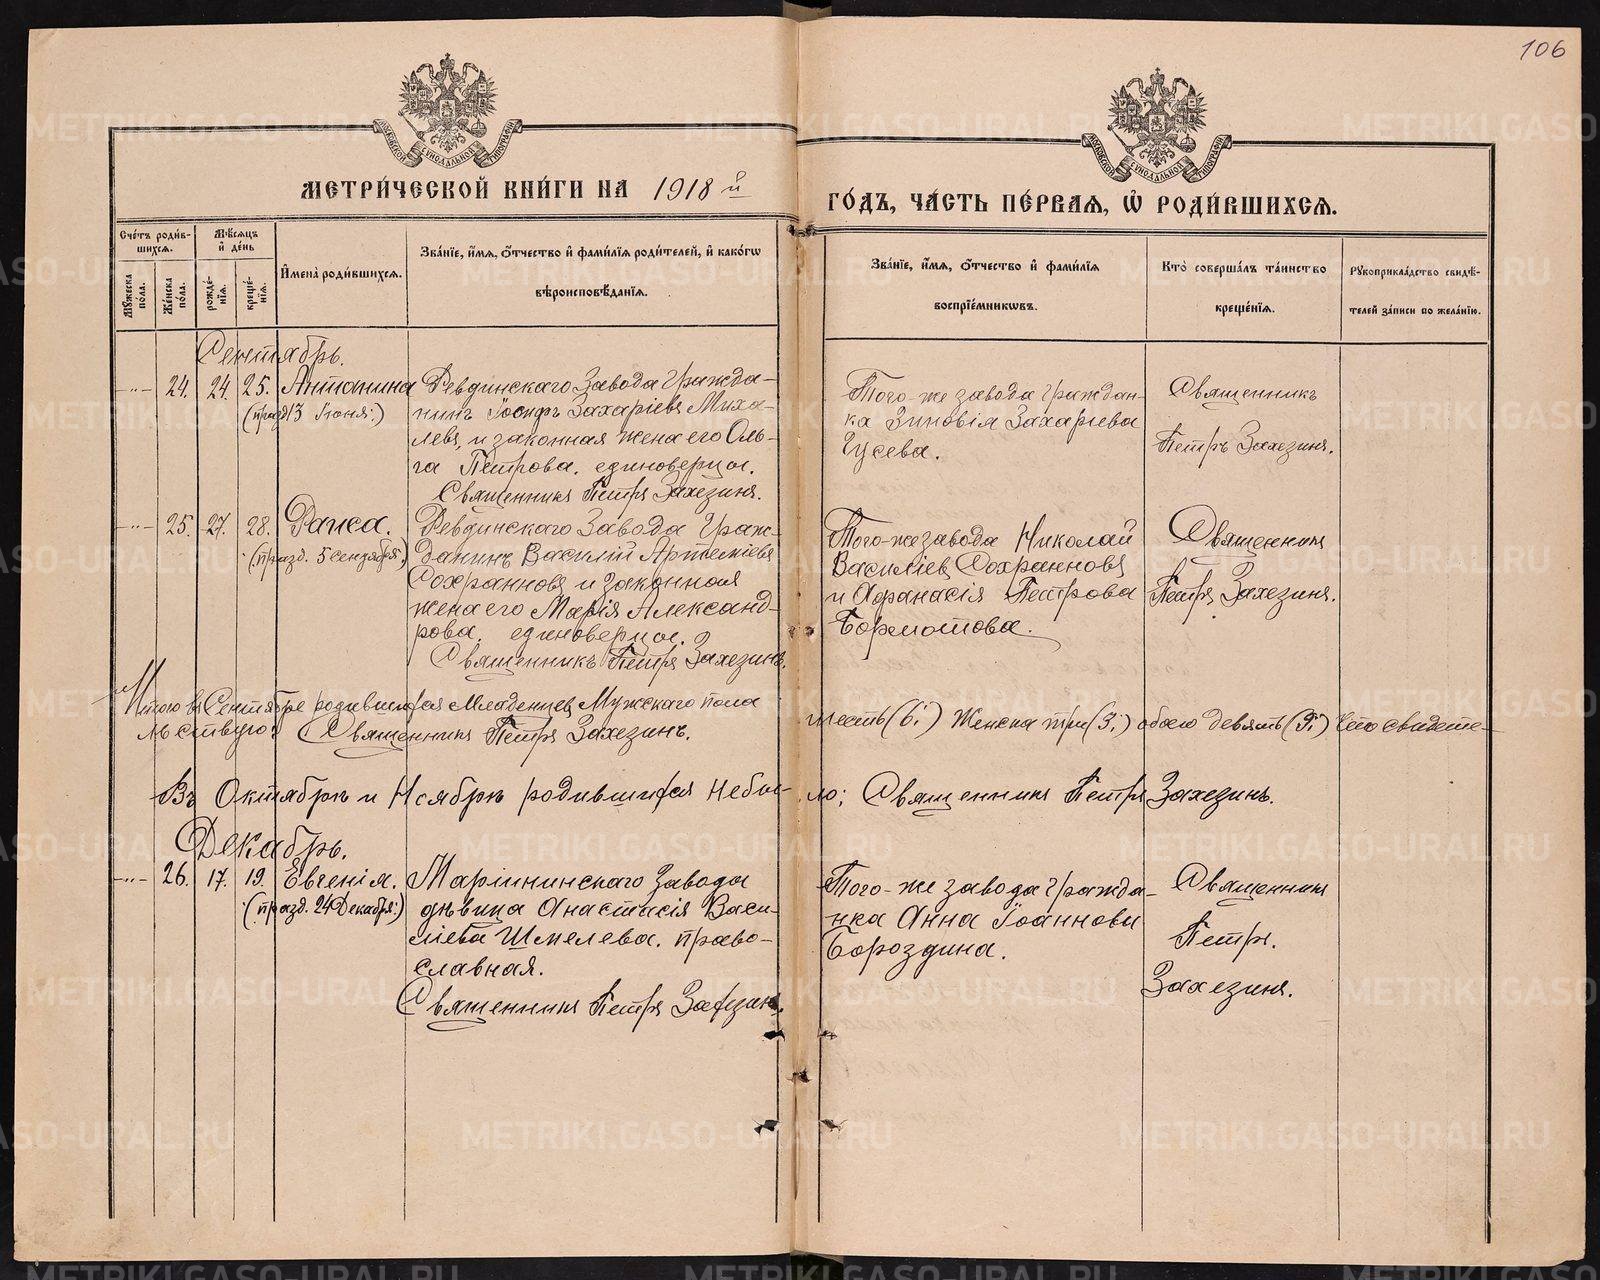 106
МОСКОВСКОЙ СѴНОДАЛЬНОЙ ТИПОГРАФІИ
МОСКОВСКОЙ СѴНОДАЛЬНОЙ ТИПОГРАФІИ
МЕТРИ́ЧЕСКОЙ КНИ́ГИ НА 1918 й
ГО́ДЪ, ЧА́СТЬ ПЕ́РВАЯ, Ѡ҆ РОДИ́ВШИХСЯ.
Сче́тъ роди́в-
шихся.
Мѣ́сяцъ
и҆ де́нь
Мꙋ́жеска по́ла.
Же́нска по́ла.
рожде́-
нїя.
креще́-
нїя.
И҆мена̀ роди́вшихся.
Зва́нїе, и҆́мя, ѻ҆́тчество и҆ фами́лїя роди́телей, и҆ како́гѡ
вѣроисповѣ́данїя.
Зва́нїе, и҆́мя, ѻ҆́тчество и҆ фами́лїя
воспрїе́мникѡвъ.
Кто̀ соверша́лъ та́инство
креще́нїя.
Рꙋкоприкла́дство свидѣ́-
телей за́писи по жела́нїю.
Сентябрь.
-"- 24. 24. 25. Антонина
(празд. 13 Іюня.)
Ревдинскаго Завода Гражда-
нинъ Іосифъ Захаріевъ Миха-
левъ, и законная жена его Оль-
га Петрова. единоверцы.
Священникъ Петръ Захезинъ.
Того-же завода Граждан-
ка Зиновія Захарьева
Гусева.
Священникъ
Петръ Захезинъ.
-"- 25. 27. 28. Раиса.
(празд. 5 сентября.)
Ревдинскаго Завода Граж-
данинъ Василій Артеміевъ
Сохранновъ и законная
жена его Марія Александ-
рова. единоверцы.
Священникъ Петръ Захезинъ.
Того-же завода Николай
Василіевъ Сохранновъ
и Афанасія Петрова
Бормотова.
Священникъ
Петръ Захезинъ.
Итого въ Сентябре родившихся Младенцевъ Мужского пола
шесть (6.) Женска три (3.) обоего девять (9.) Чего свидете-
льствую: Священникъ Петръ Захезинъ.
Въ Октябрѣ и Ноябрѣ родившихся небы-
ло; Священникъ Петръ Захезинъ.
Декабрь.
-"- 26. 17. 19. Евгенія.
(празд. 24 Декабря.)
Маріининскаго Завода
дѣвица Анастасія Васи-
ліева Шмелева. право-
славная.
Священникъ Петръ Захезинъ.
Того-же завода Гражда-
нка Анна Іоаннова
Бороздина.
Священникъ
Петръ.
Захезинъ.
METRIKI.GASO-URAL.RU